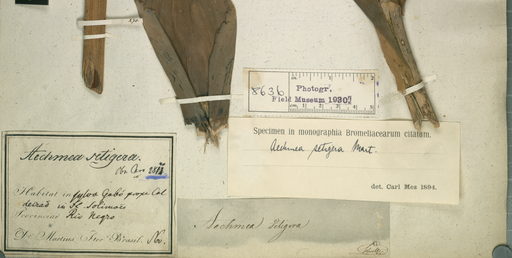 8636
Photogr.
Field Museum 1930
Specimen in monographia Bromeliacearum citatum.
Aechmea setigera Mart.
det. Carl Mez 1894.
Aechmea setigera.
Habitat in sylva Gabó prope Col
in Solimões
Provinciae Rio Negro
Dr. Martius Iter Brasil. Nov.
Aechmea setigera